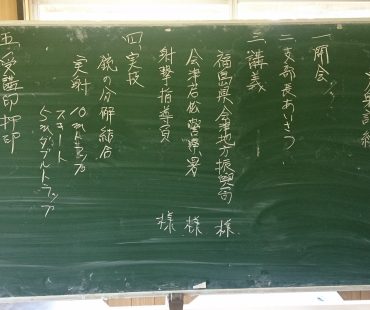 一開会
二支部長あいさつ
三、講義
福島県会津地方振興局 様
会津若松警察署 様
射撃指導員 様
四、実技
銃の分解結合
実射 10mトラップ
スキート
5mダブルトラップ
五、受講印押印